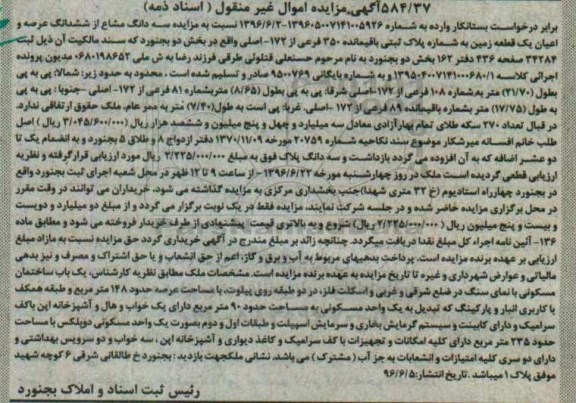 ۵۸۴/۳۷ آگهی مزایده اموال غیر منقول ( اسناد ذمه)
برابر درخواست بستانکار وارده به شماره ۱۳۹۶۰۵۰۰۷۱۴۱۰۰۵۹۲۶-۱۳۹۶/۶/۲ نسبت به مزایده سه دانگ مشاع از ششدانگ عرصه و
اعیان یک قطعه زمین به شماره پلاک ثبتی باقیمانده ۳۵۰ فرعی از ۱۷۲-اصلی واقع در بخش دو بجنورد که سند مالکیت آن ذیل ثبت
۳۴۲۸۴ صفحه ۴۳۶ دفتر ۱۶۲ بخش دو بجنورد به نام مرحوم حسنعلی قتلولی طرقی فرزند رضا به ش ملی ۰۶۸۰۱۹۸۶۵۲ مدیون پرونده
اجرائی کلاسه ۱۳۹۵۰۴۰۰۷۱۴۱۰۰۰۶۸۰/۱ و به شماره بایگانی ۹۵۰۰۷۶۹ صادر و تسلیم شده است . محدود به حدود زیر: شمالا: پی به پی
بطول (۲۱/۷۰) متر به شماره ۱۰۸ فرعی از ۱۷۲-اصلی شرقا: پی به پی بطول (۸/۶۵) متر بشماره ۸۱ فرعی از ۱۷۲-اصلی -جنوبا: پی به پی
به طول (۱۷/۷۵) متر بشماره باقیمانده ۸۹ فرعی از ۱۷۲ -اصلی. غربا: پی است به طول (۷/۴۰) متر به ممر عام. ملک حقوق ارتفاقی ندارد.
در قبال تعداد ۲۷۰ سکه طلای تمام بهار آزادی معادل سه میلیارد و چهل و پنج میلیون و ششصد هزار ریال (۳/۰۴۵/۶۰۰/۰۰۰) ریال ) اصل
طلب خانم افسانه میرشکار موضوع سند نکاحیه شماره ۲۰۷۵۹ مورخه ۱۳۷۰/۱۱/۰۹ دفتر ازدواج ۸ و طلاق ۵ بجنورد و به انضمام یک تا
دو عشر اضافه که به آن افزوده می گردد بازداشت و سه دانگ پلاک فوق به مبلغ ۲/۲۲۵/۰۰۰/۰۰۰ ریال مورد ارزیابی قرار گرفته و نظریه
ارزیابی قطعی گردیده است ملک در روز چهارشنبه مورخه ۱۳۹۶/۶/۲۲ - از ساعت ۹ تا ۱۲ ظهر در محل شعبه اجرای ثبت بجنورد واقع
در بجنورد چهارراه استادیوم (خ ۳۲ متری شهدا)جنب بخشداری مرکزی به مزایده گذاشته می شود. خریداران می توانند در وقت مقرر
در محل برگزاری مزایده حاضر شده و در جلسه شرکت نمایند. مزایده فقط در یک نوبت برگزار می گردد و از مبلغ دو میلیارد و دویست
و بیست و پنج میلیون ریال ( ۲/۲۲۵/۰۰۰/۰۰۰ ریال) شروع و به بالاتری قیمت پیشنهادی از طرف خریدار فروخته می شود و مطابق ماده
۱۳۶- آئین نامه اجراء کل مبلغ نقدا دریافت میگردد. چنانچه زائد بر مبلغ مندرج در آگهی خریداری گردد حق مزایده نسبت به مازاد مبلغ
ارزیابی بر عهده برنده مزایده است. پرداخت بدهیهای مربوط به آب و برق و گاز؛ اعم از حق انشعاب و یا حق اشتراک و مصرف و نیز بدهی
مالیاتی و عوارض شهرداری و غیره تا تاریخ مزایده به عهده برنده مزایده است. مشخصات ملک مطابق نظریه کارشناس، یک باب ساختمان
مسکونی با نمای سنگ در ضلع شرقی و غربی و اسکلت فلز، در دو طبقه روی پیلوت، با مساحت عرصه حدود ۱۴۸ متر مربع و طبقه همکف
با کاربری انبار و پارکینگ که تبدیل به یک واحد مسکونی به مساحت حدود ۹۰ متر مربع دارای یک خواب و هال و آشپزخانه اپن باکف
سرامیک و دارای کابینت و سیستم گرمایش بخاری و سرمایش اسپیلت و طبقات اول و دوم بصورت یک واحد مسکونی دوپلکس با مساحت
حدود ۲۳۵ متر مربع دارای کلیه امکانات و تجهیزات با کف سرامیک و کاغذ دیواری و آشپزخانه اپن، سه خواب و دو سرویس بهداشتی و
دارای دو سری کلیه امتیازات و انشعابات به جز آب ( مشترک ) می باشد. نشانی ملک جهت بازدید : بجنورد خ طالقانی شرقی ۶ کوچه شهید
موفق پلاک ۱ میباشد .تاریخ انتشار:۹۶/۶/۵
رئیس ثبت اسناد و املاک بجنورد